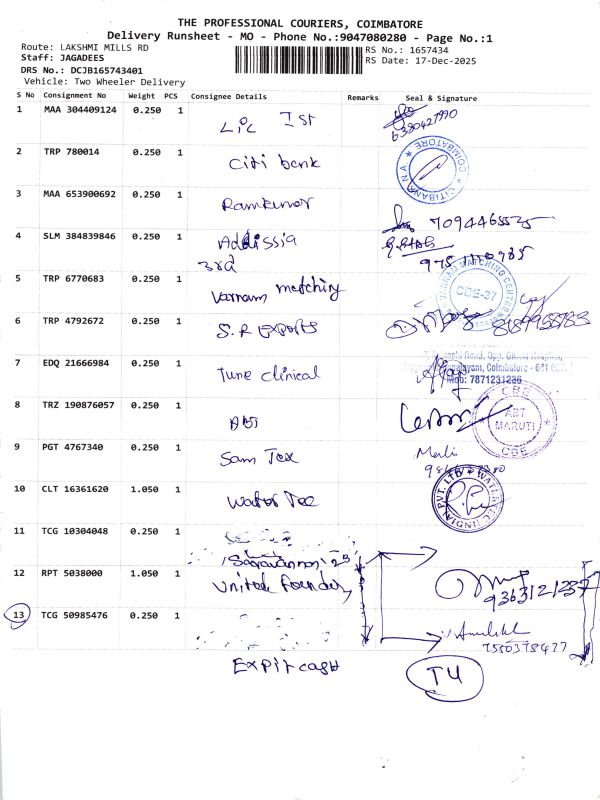 THE PROFESSIONAL COURIERS, COIMBATORE
Delivery Runsheet - MO - Phone No.:9047080280 - Page No.:1
Route: LAKSHMI MILLS RD
Staff: JAGADEES
DRS No.: DCJB165743401
Vehicle: Two Wheeler Delivery
RS No.: 1657434
RS Date: 17-Dec-2025
S No Consignment No Weight PCS Consignee Details Remarks Seal & Signature
1 MAA 304409124 0.250 1 Lic Ist
2 TRP 780014 0.250 1 Citi bank CITIBANK N.A. COIMBATORE
3 MAA 653900692 0.250 1 Ramkumar 7094465525
4 SLM 384839846 0.250 1 Addissia
5 TRP 6770683 0.250 1 3rd Varnam matching MATCHING CENTRE CBE-37
6 TRP 4792672 0.250 1 S.R Exports
7 EDQ 21666984 0.250 1 Tune clinical Road, Opp. Hospital, Coimbatore - 641 Mob: 7871231236
8 TRZ 190876057 0.250 1 ABT CBE ABT MARUTI CBE
9 PGT 4767340 0.250 1 Sam Tex
10 CLT 16361620 1.050 1 Water Tec WATER TEC (INDIA) PVT. LTD
11 TCG 10304048 0.250 1
12 RPT 5038000 1.050 1 United 9363121237
13 TCG 50985476 0.250 1 7550378477
Expit cash
T4